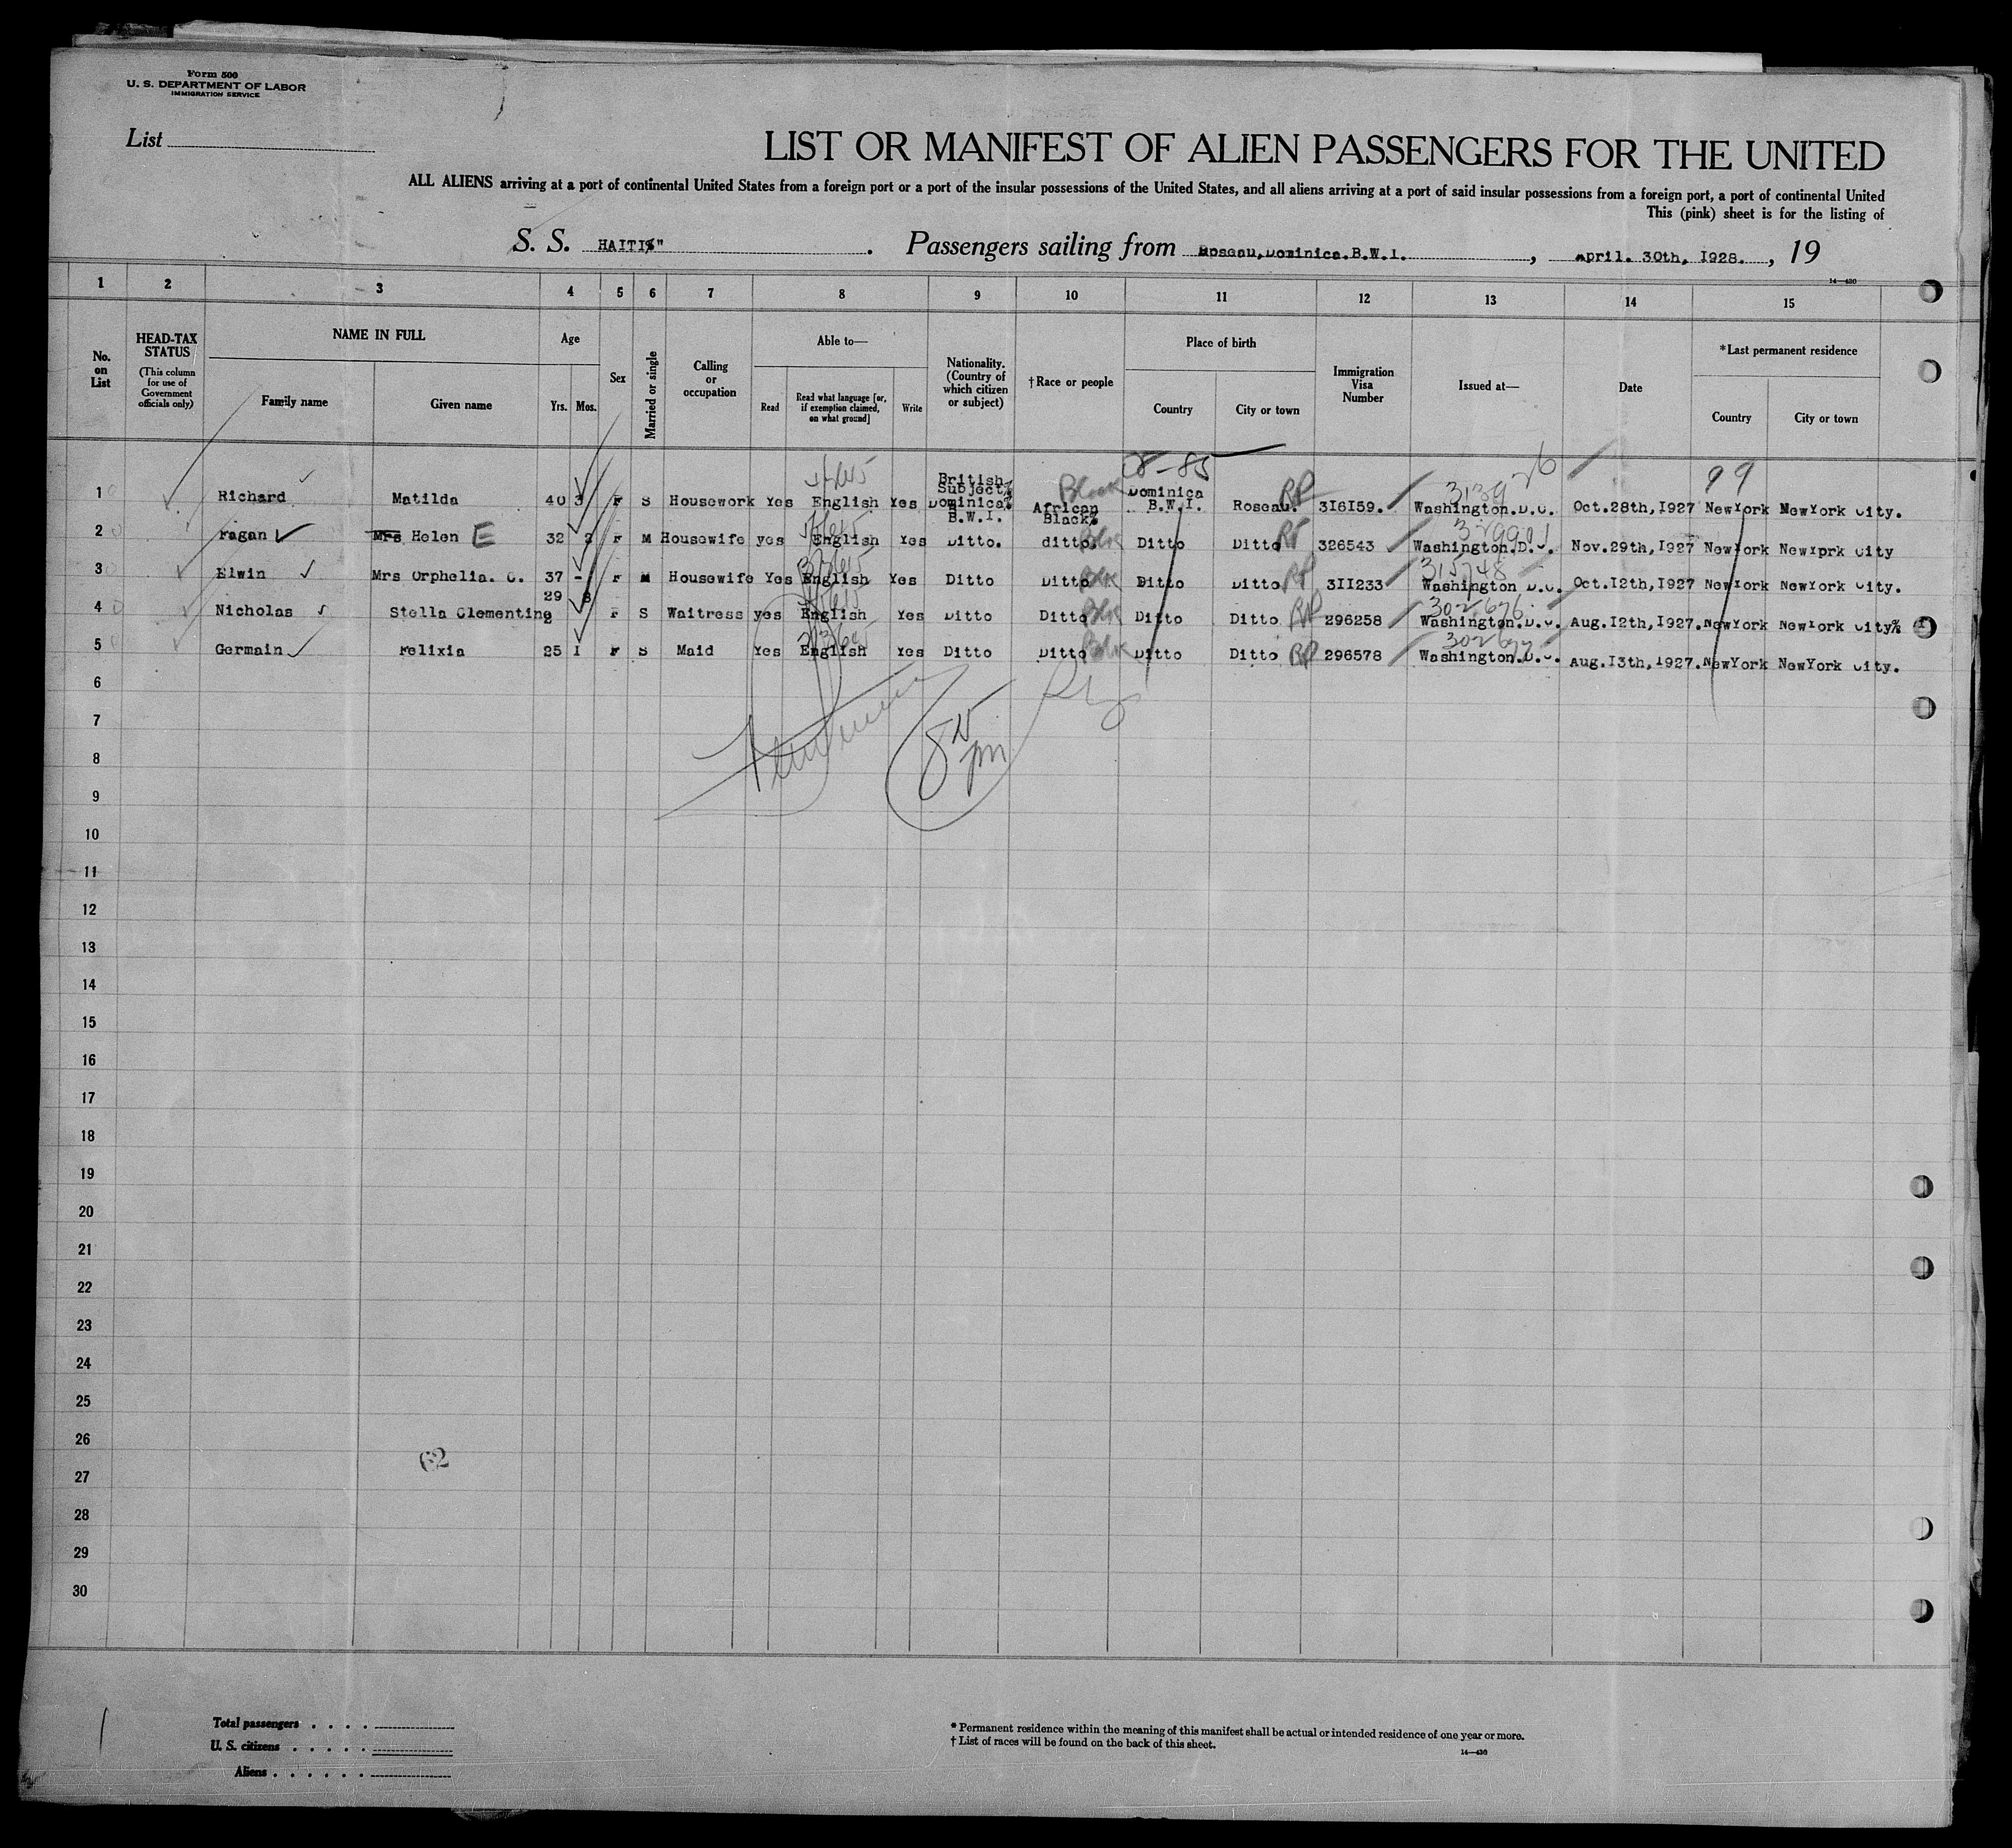 Form 500
U. S. DEPARTMENT OF LABOR
IMMIGRATION SERVICE
List
LIST OR MANIFEST OF ALIEN PASSENGERS FOR THE UNITED
ALL ALIENS arriving at a port of continental United States from a foreign port or a port of the insular possessions of the United States, and all aliens arriving at a port of said insular possessions from a foreign port, a port of continental United
This (pink) sheet is for the listing of
S. S. HAITI%" . Passengers sailing from Roseau,Dominica.B.W.I. , April. 30th, 1928. , 19
14—430
1 2 3 4 5 6 7 8 9 10 11 12 13 14 15
No. on List
HEAD-TAX STATUS
(This column for use of Government officials only)
NAME IN FULL
Family name Given name
Age
Yrs. Mos.
Sex
Married or single
Calling or occupation
Able to—
Read Read what language [or, if exemption claimed, on what ground] Write
Nationality. (Country of which citizen or subject)
†Race or people
Place of birth
Country City or town
Immigration Visa Number
Issued at—
Date
*Last permanent residence
Country City or town
08-85 99
1 Richard Matilda 40 3 F S Housework Yes English Yes British Subject% Dominica% B.W.I. African Black% Black Dominica B.W.I. Roseau. RP 316159. Washington.D.C. Oct.28th,1927 NewYork NewYork City.
2 Fagan Mrs Helen E 32 2 F M Housewife yes English Yes Ditto. ditto. Blk Ditto Ditto RP 326543 Washington.D.C. Nov.29th,1927 NewYork NewYprk City
315748
3 Elwin Mrs Orphelia. C. 37 - F M Housewife Yes English Yes Ditto Ditto Blk Ditto Ditto RP 311233 Washington D.C. Oct.12th,1927 NewYork NewYork City.
302676
4 Nicholas Stella Clementine 29 8 F S Waitress yes English Yes Ditto Ditto Blk Ditto Ditto RP 296258 Washington.D.C. Aug.12th,1927. NewYork NewYork City%
302677
5 Germain Felixia 25 1 F S Maid Yes English Yes Ditto Ditto Blk Ditto Ditto RP 296578 Washington.D.C. Aug.13th,1927. NewYork NewYork City.
6
7
8 pm
8
9
10
11
12
13
14
15
16
17
18
19
20
21
22
23
24
25
26
62
27
28
29
30
Total passengers . . . .
U. S. citizens . . . . .
Aliens . . . . . .
* Permanent residence within the meaning of this manifest shall be actual or intended residence of one year or more.
† List of races will be found on the back of this sheet.
14—430